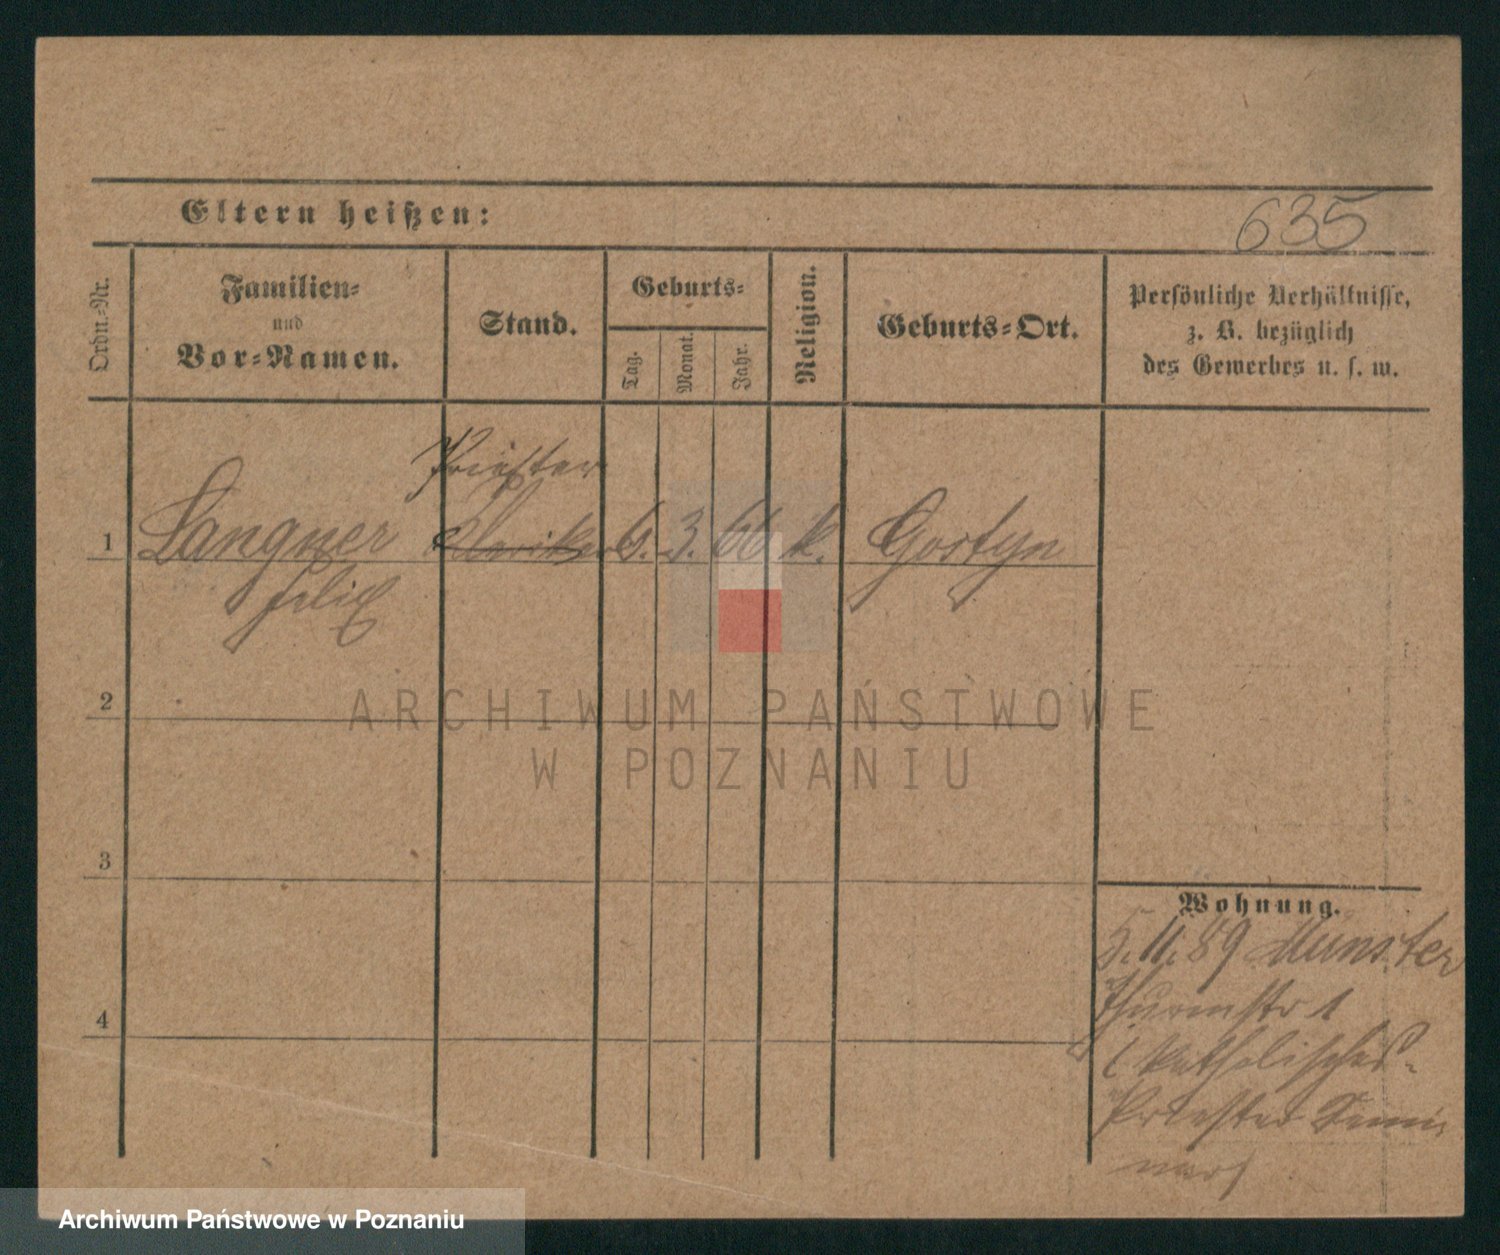 Eltern heißen:
635
Ordn.-Nr.
Familien-
und
Vor-Namen.
Stand.
Geburts-
Tag.
Monat.
Jahr.
Religion.
Geburts-Ort.
Persönliche Verhältnisse,
z. B. bezüglich
des Gewerbes u. s. w.
Priester
1 Langner Kleriker 6. 3. 66 k. Gostyn
Felix
2
ARCHIWUM PAŃSTWOWE
W POZNANIU
3
4
Wohnung.
5. 11. 89 Münster
Thurmstr 1
( katholisches-
Priester Semi
nar)
Archiwum Państwowe w Poznaniu